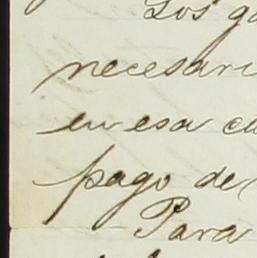 Los
necesari
en esa
pago de
Para